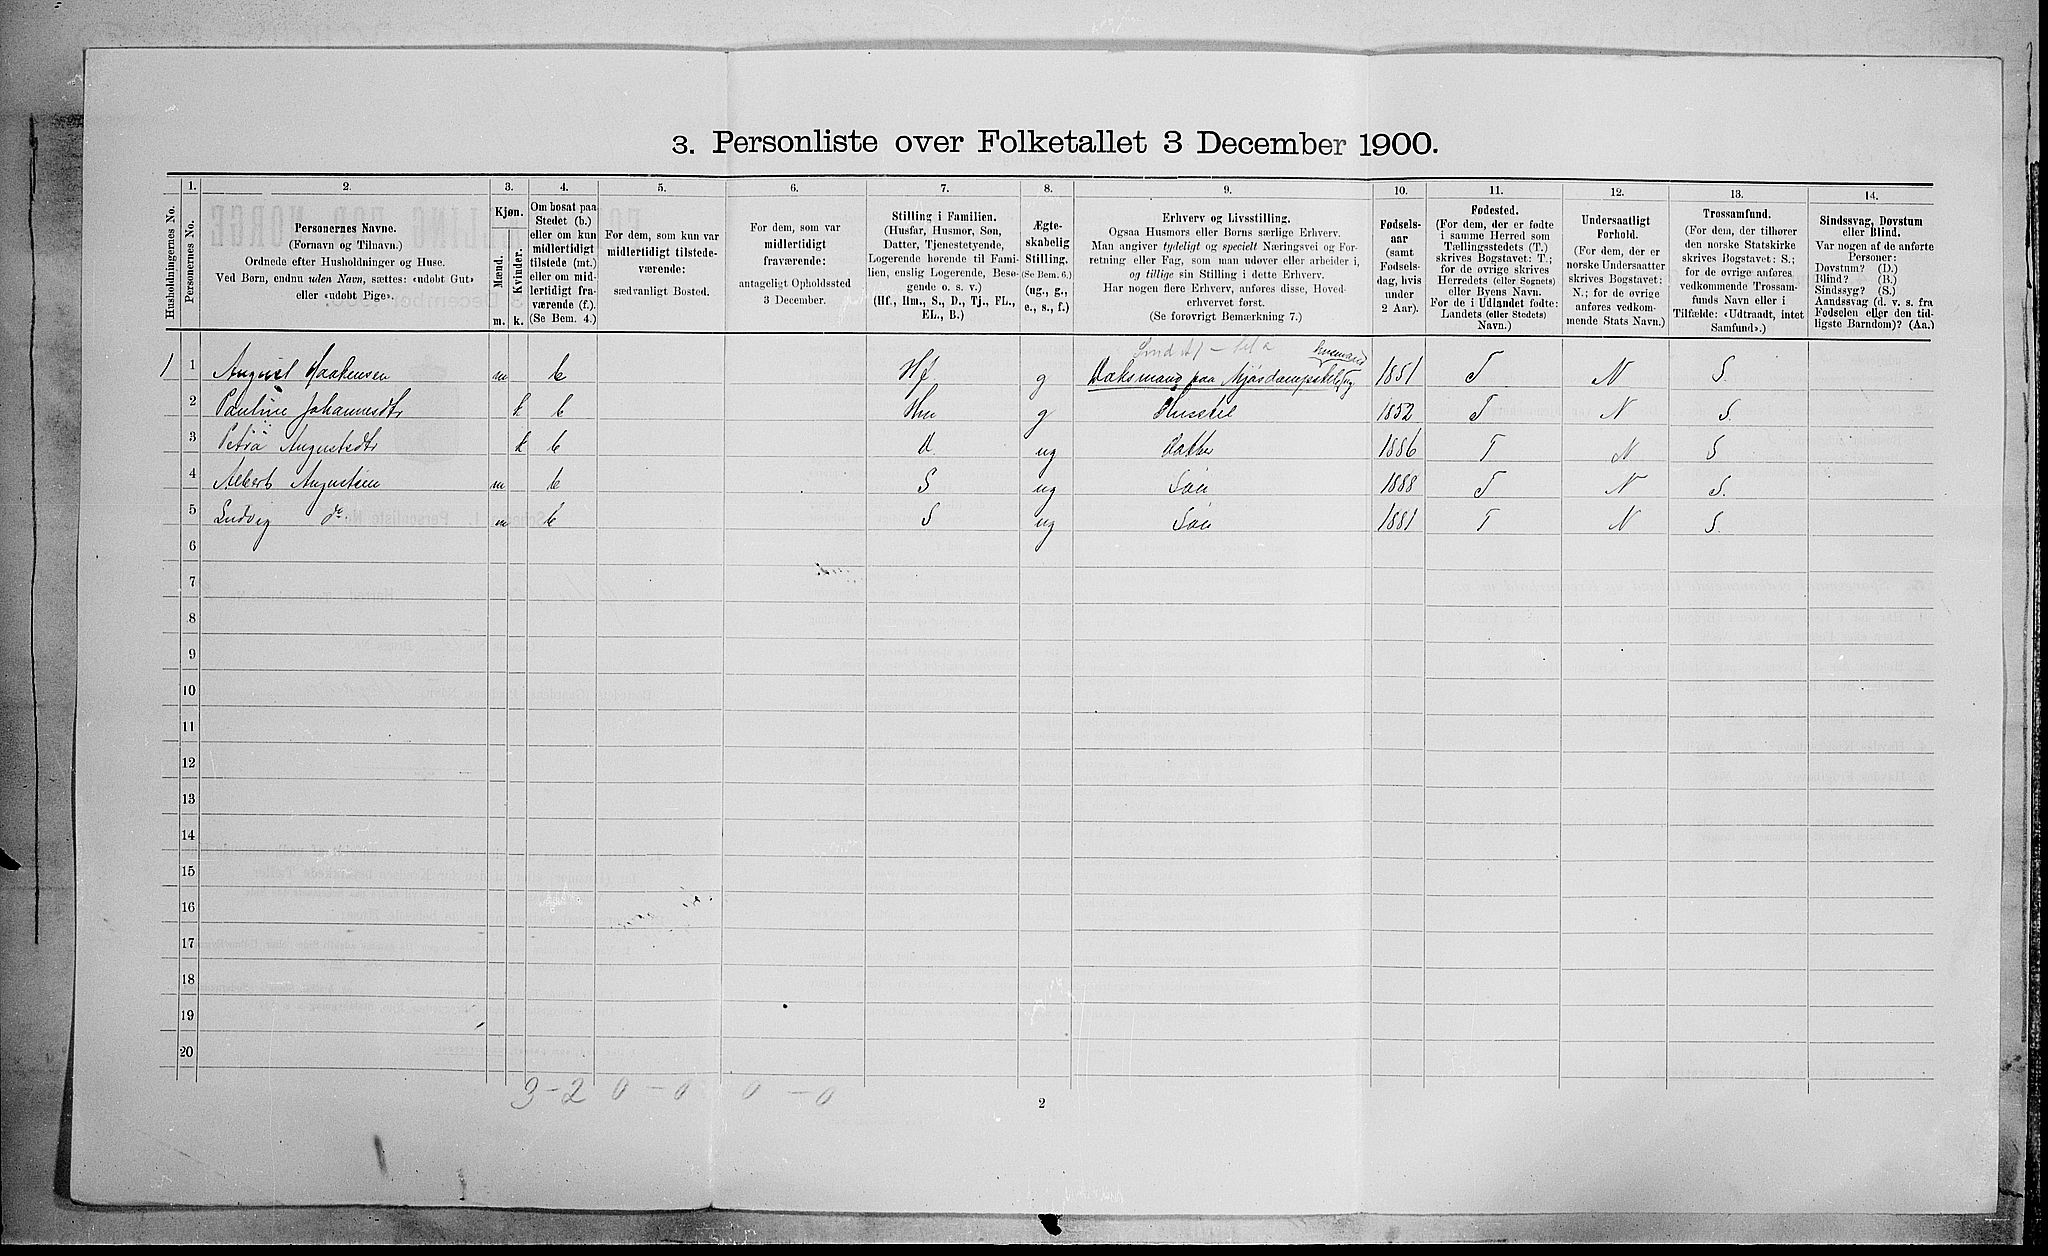 3. Personliste over Folketallet 3 December 1900.
Husholdningernes No.
1.
Personernes No.
2.
Personernes Navne.
(Fornavn og Tilnavn.)
Ordnede efter Husholdninger og Huse.
Ved Børn, endnu uden Navn, sættes: «udøbt Gut»
eller «udøbt Pige».
3.
Kjøn.
Mænd.
Kvinder.
m. k.
4.
Om bosat paa
Stedet (b.)
eller om kun
midlertidigt
tilstede (mt.)
eller om mid-
lertidigt fra-
værende (f.).
(Se Bem. 4.)
5.
For dem, som kun var
midlertidigt tilstede-
værende:
sædvanligt Bosted.
6.
For dem, som var
midlertidigt
fraværende:
antageligt Opholdssted
3 December.
7.
Stilling i Familien.
(Husfar, Husmor, Søn,
Datter, Tjenestetyende,
Logerende hørende til Fami-
lien, enslig Logerende, Besø-
gende o. s. v.)
(Hf., Hm., S., D., Tj., FL.,
EL., B.)
8.
Ægte-
skabelig
Stilling.
(Se Bem. 6.)
(ug., g.,
e., s., f.)
9.
Erhverv og Livsstilling.
Ogsaa Husmors eller Børns særlige Erhverv.
Man angiver tydeligt og specielt Næringsvei og For-
retning eller Fag, som man udøver eller arbeider i,
og tillige sin Stilling i dette Erhverv.
Har nogen flere Erhverv, anføres disse, Hoved-
erhvervet først.
(Se forøvrigt Bemærkning 7.)
10.
Fødsels-
aar
(samt
Fødsels-
dag, hvis
under
2 Aar).
11.
Fødested.
(For dem, der er fødte
i samme Herred som
Tællingsstedets (T.)
skrives Bogstavet: T.;
for de øvrige skrives
Herredets (eller Sognets)
eller Byens Navn.
For de i Udlandet fødte:
Landets (eller Stedets)
Navn.)
12.
Undersaatligt
Forhold.
(For dem, der er
norske Undersaatter
skrives Bogstavet:
N.; for de øvrige
anføres vedkom-
mende Stats Navn.)
13.
Trossamfund.
(For dem, der tilhører
den norske Statskirke
skrives Bogstavet: S.;
for de øvrige anføres
vedkommende Trossam-
funds Navn eller i
Tilfælde: «Udtraadt, intet
Samfund».)
14.
Sindssvag, Døvstum
eller Blind.
Var nogen af de anførte
Personer:
Døvstum? (D.)
Blind? (B.)
Sindssyg? (S.)
Aandssvag (d. v. s. fra
Fødselen eller den tid-
ligste Barndom)? (Aa.)
husmand
1 1 August Haakensen m b Hf g Dæksmand paa Mjøsdampskib 1851 T N S.
2 Pauline Johannesdtr k b Hm g Husstel 1852 T N S.
3 Petra Augustsdtr k b D. ug Datter 1886 T N S
4 Albert Augustsen m b S ug Søn 1888 T N S.
5 Ludvig do m b S ug Søn 1881 T N S.
6
7
8
9
10
11
12
13
14
15
16
17
18
19
20
3-2 0-0 0-0
2